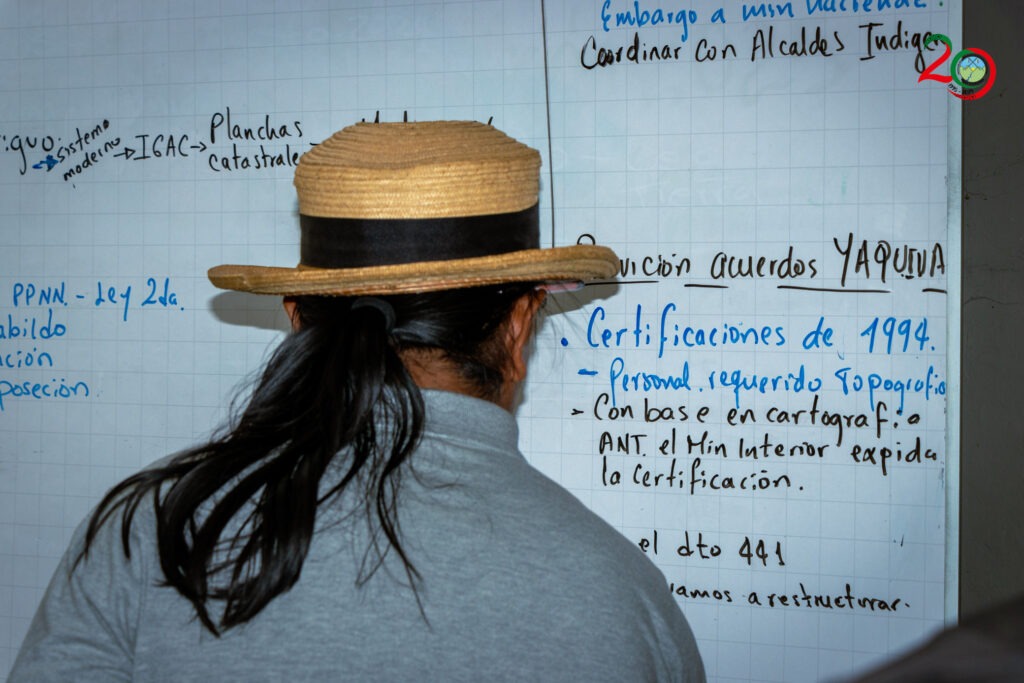 Embargo a min hacienda.
Coordinar con Alcaldes Indigen
20
sistema
moderno → IGAC → Planchas
catastrale
PPNN. - Ley 2da.
abildo
ción
poseción
vición acuerdos YAQUIVA
• Certificaciones de 1994.
- Personal requerido Topografia
> Con base en cartografia
ANT. el Min Interior expida
la certificación.
el dto 441
vamos a restructurar.